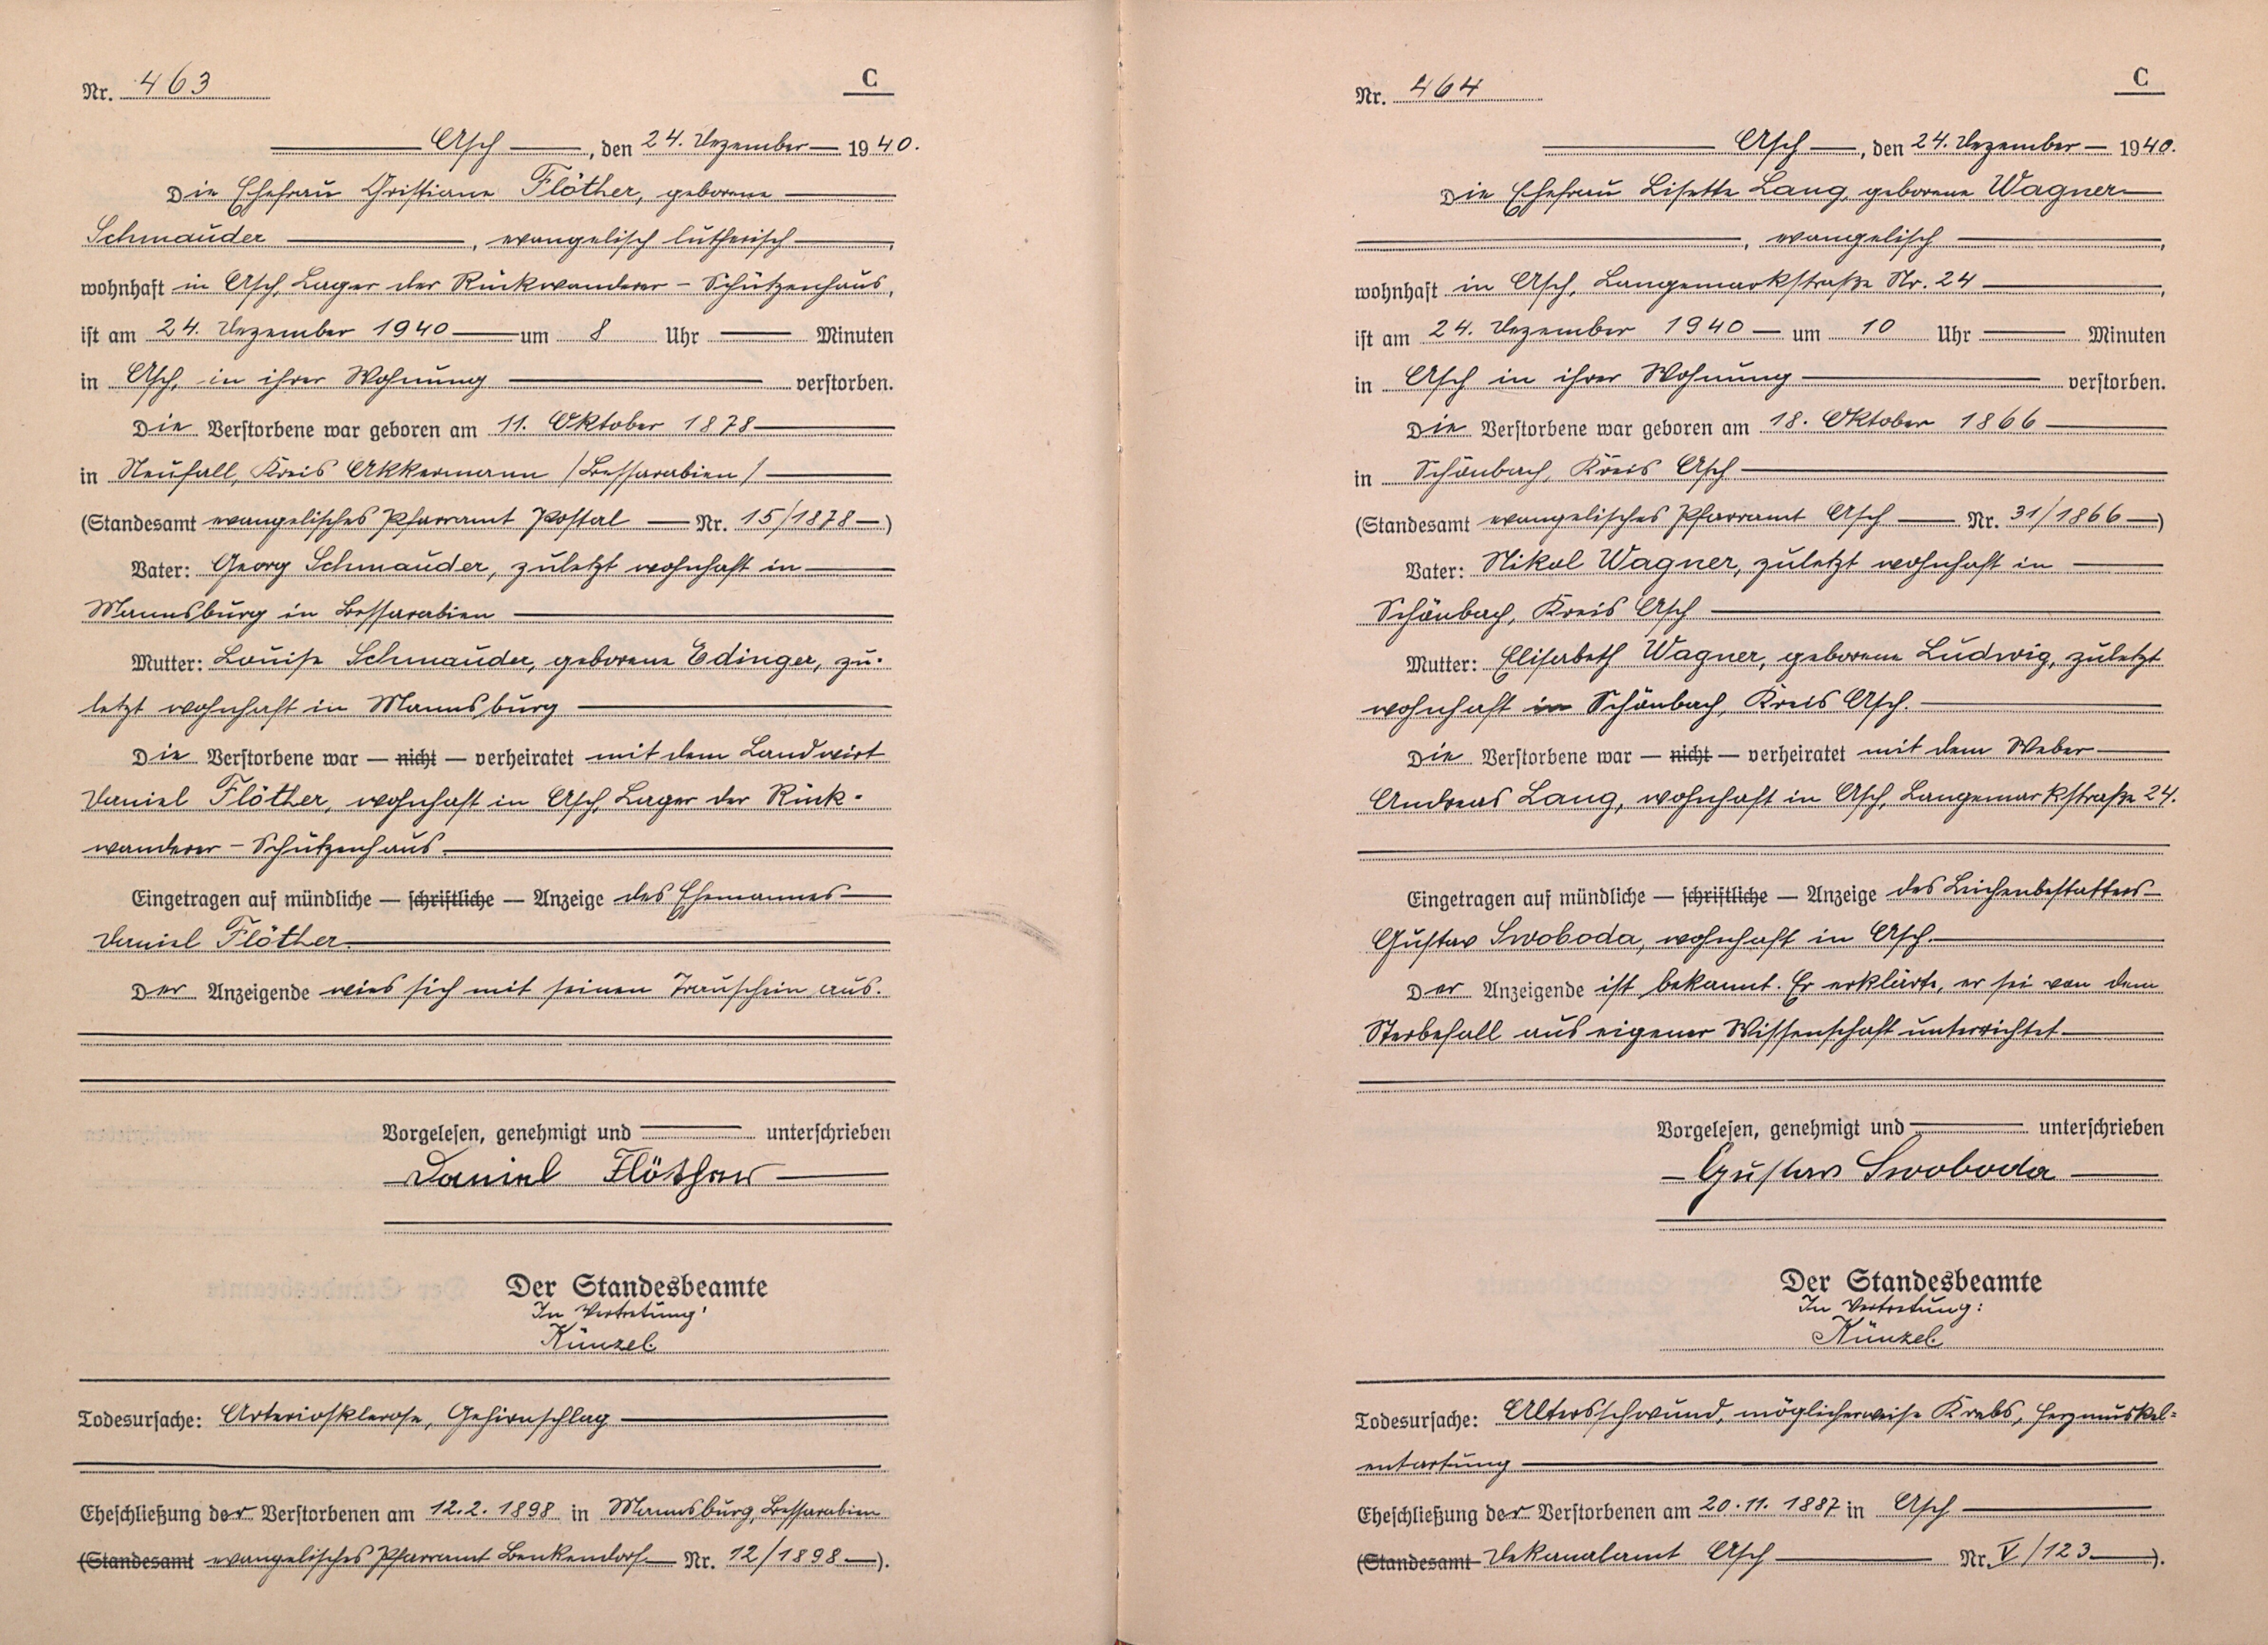 Nr. 463
C
Asch, den 24. Dezember 1940.
Die Ehefrau Christiane Flöther, geborene
Schmauder, evangelisch lutherisch,
wohnhaft in Asch, Lager der Rückwanderer - Schützenhaus,
ist am 24. Dezember 1940 um 8 Uhr Minuten
in Asch, in ihrer Wohnung verstorben.
Die Verstorbene war geboren am 11. Oktober 1878
in Neufall, Kreis Akkermann /Bessarabien/
(Standesamt evangelisches Pfarramt Postal Nr. 15/1878)
Vater: Georg Schmauder, zuletzt wohnhaft in
Mannsburg in Bessarabien
Mutter: Louise Schmauder, geborene Edinger, zu-
letzt wohnhaft in Mannsburg
Die Verstorbene war — nicht — verheiratet mit dem Landwirt
Daniel Flöther, wohnhaft in Asch, Lager der Rück-
wanderer - Schützenhaus.
Eingetragen auf mündliche — schriftliche — Anzeige des Ehemannes
Daniel Flöther.
Der Anzeigende wies sich mit seinen Trauschein aus.
Vorgelesen, genehmigt und unterschrieben
Daniel Flöther
Der Standesbeamte
In Vertretung:
Künzel.
Todesursache: Arteriosklerose, Gehirnschlag
Eheschließung der Verstorbenen am 12.2.1898 in Mannsburg, Bessarabien
(Standesamt evangelisches Pfarramt Benkendorf Nr. 12/1898).
Nr. 464
C
Asch, den 24. Dezember 1940.
Die Ehefrau Lisette Lang, geborene Wagner
, evangelisch,
wohnhaft in Asch, Langemarkstraße Nr. 24,
ist am 24. Dezember 1940 um 10 Uhr Minuten
in Asch in ihrer Wohnung verstorben.
Die Verstorbene war geboren am 18. Oktober 1866
in Schönbach, Kreis Asch
(Standesamt evangelisches Pfarramt Asch Nr. 31/1866)
Vater: Nikol Wagner, zuletzt wohnhaft in
Schönbach, Kreis Asch
Mutter: Elisabeth Wagner, geborene Ludwig, zuletzt
wohnhaft in Schönbach, Kreis Asch.
Die Verstorbene war — nicht — verheiratet mit dem Weber
Andreas Lang, wohnhaft in Asch, Langemarkstraße 24.
Eingetragen auf mündliche — schriftliche — Anzeige des Leichenbestatters
Gustav Swoboda, wohnhaft in Asch.
Der Anzeigende ist bekannt. Er erklärte, er sei von dem
Sterbefall aus eigener Wissenschaft unterrichtet
Vorgelesen, genehmigt und unterschrieben
Gustav Swoboda
Der Standesbeamte
In Vertretung:
Künzel.
Todesursache: Altersschwund, möglicherweise Krebs, Herzmuskel-
entartung
Eheschließung der Verstorbenen am 20.11.1887 in Asch
(Standesamt Dekanalamt Asch Nr. V/123).